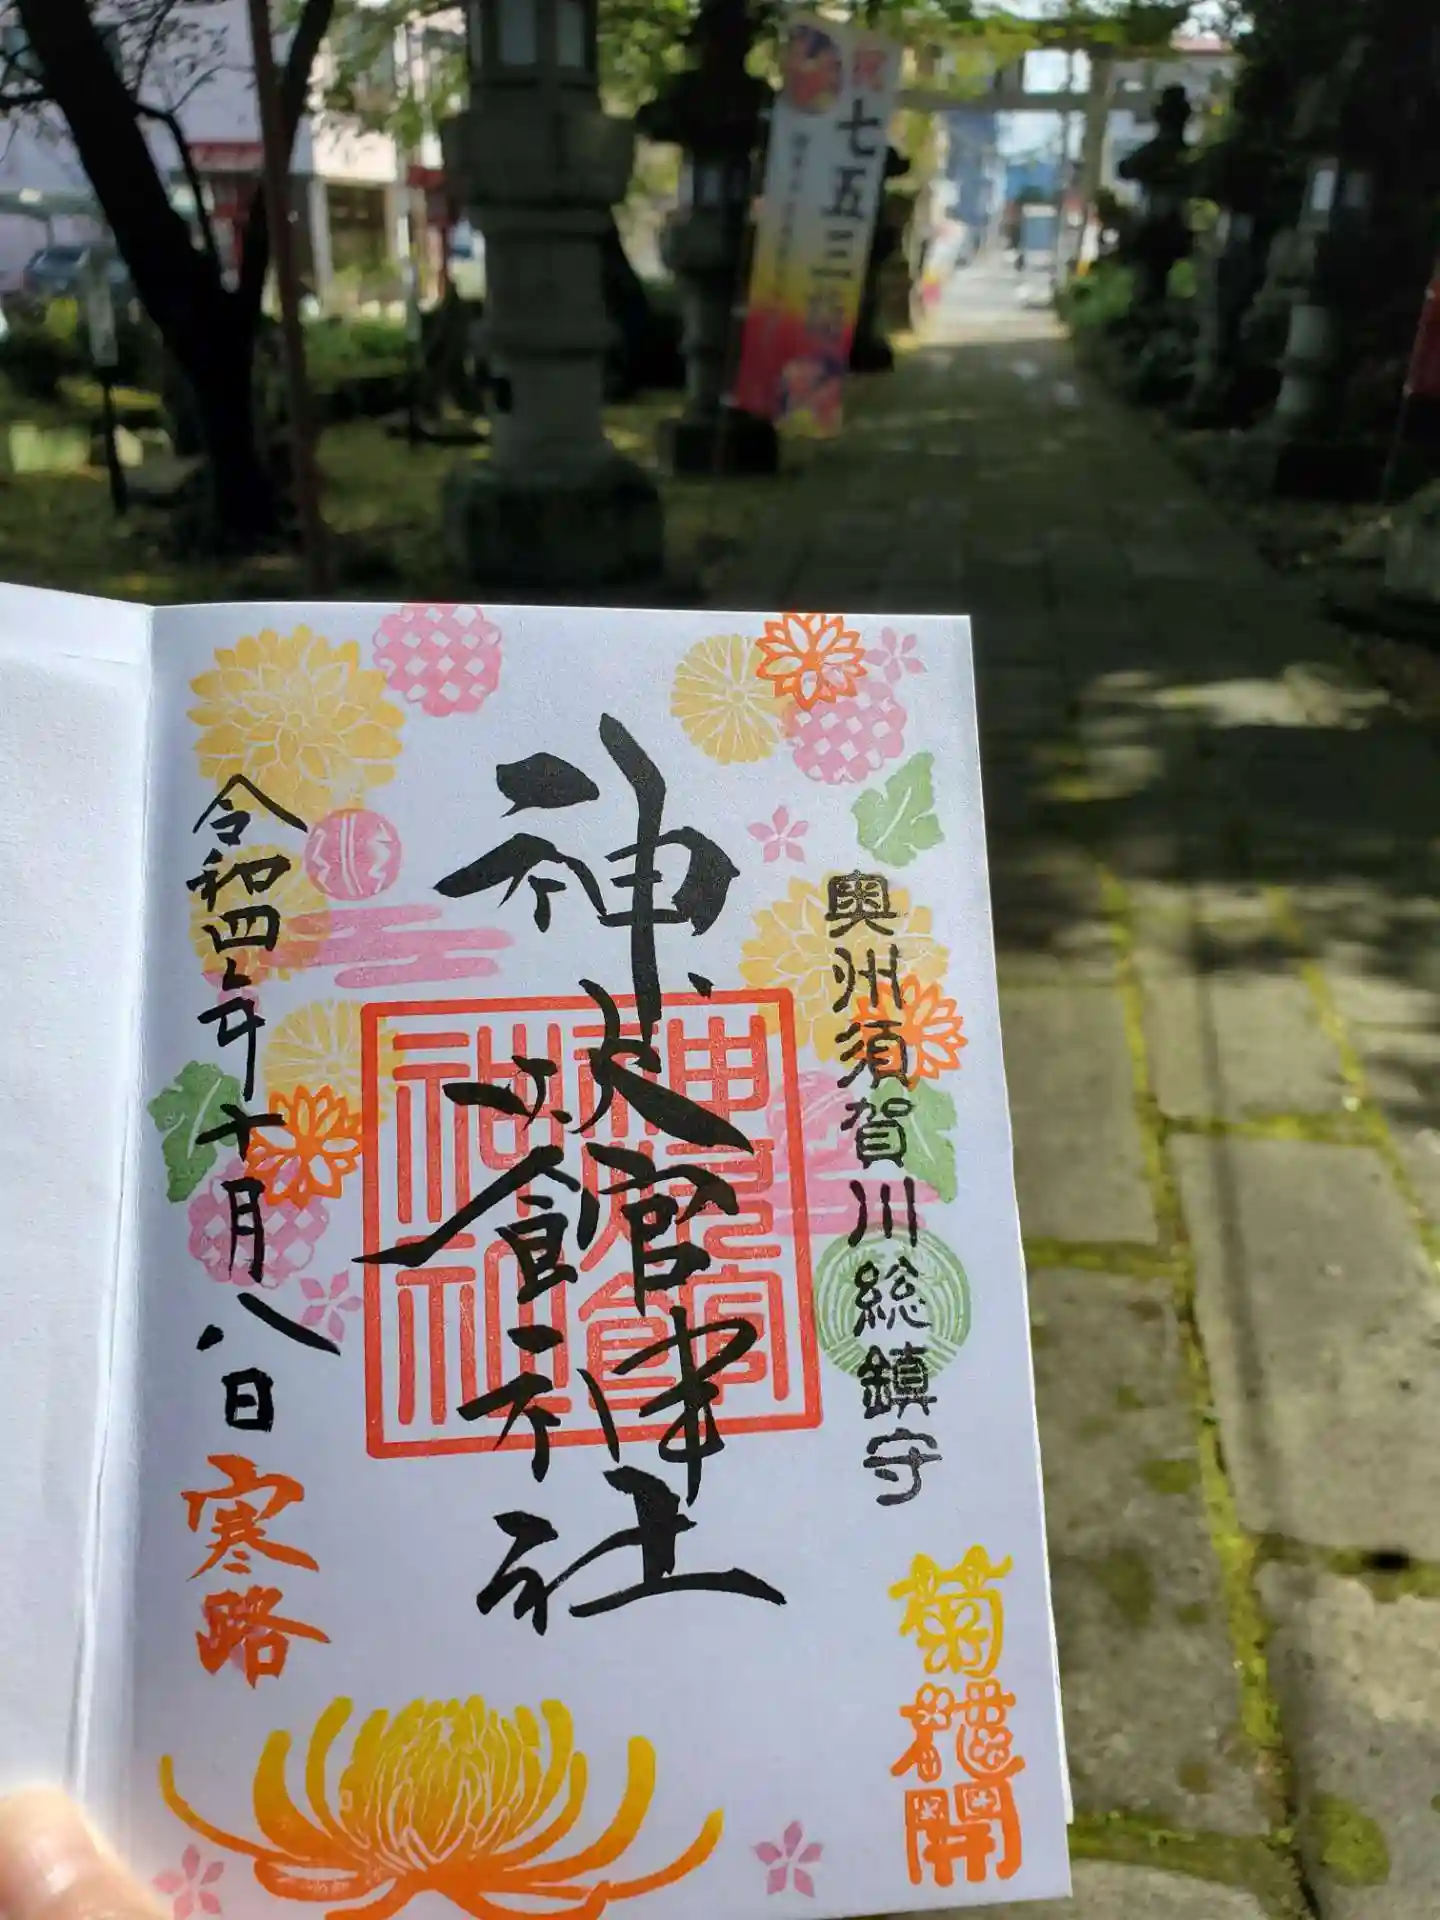 祝七五三詣
奥州須賀川総鎮守
神炊館神社
神炊館神社
令和四年十月八日
寒路
菊花開